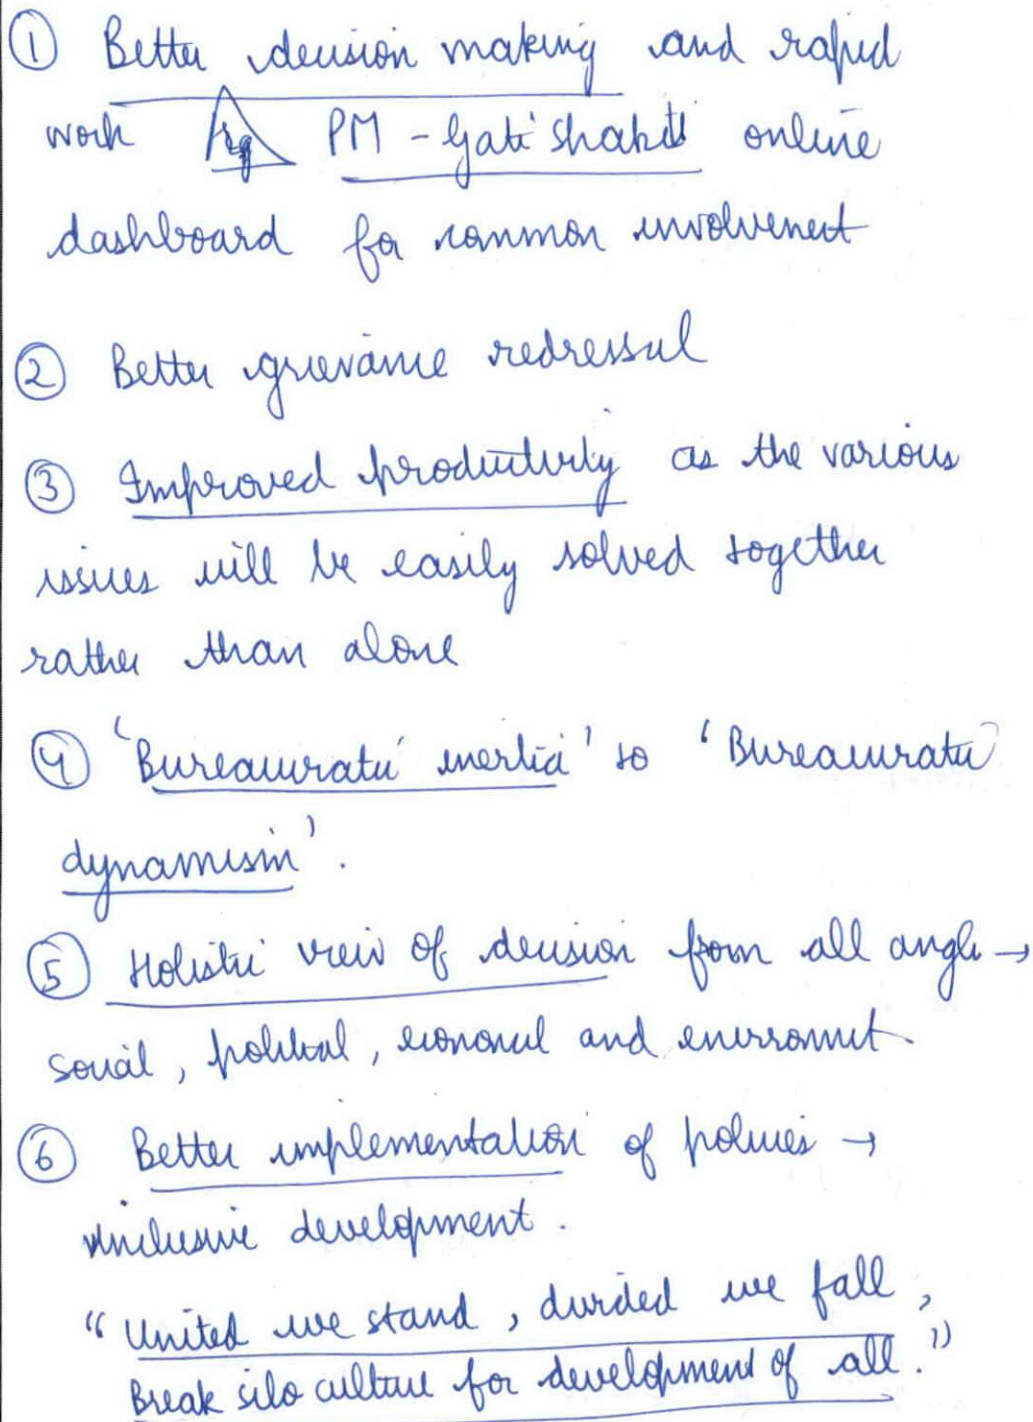 ① Better decision making and rapid
work Eg PM - Gati Shakti online
dashboard for common involvement
② Better grievance redressal
③ Improved productivity as the various
issues will be easily solved together
rather than alone
④ 'Bureaucratic inertia' to 'Bureaucratic
dynamism'.
⑤ Holistic view of decision from all angle →
social, political, economical and environment.
⑥ Better implementation of policies →
inclusive development.
"United we stand, divided we fall,
Break silo culture for development of all."